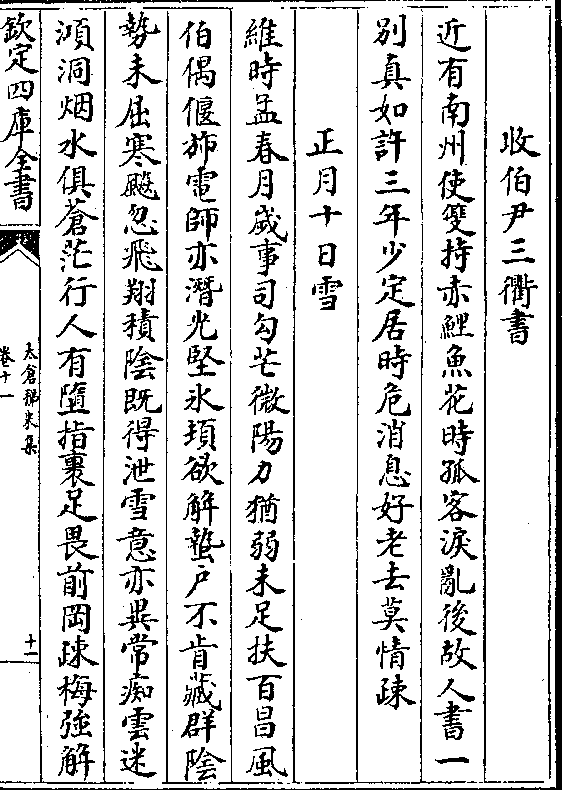 收伯尹三衢書
近有南州使雙持赤鯉魚花時孤客淚亂後故人書一
別真如許三年少定居時危消息好老去莫情疎
正月十日雪
維時孟春月歲事司勾芒微陽力猶弱未足扶百昌風
伯偶偃斾電師亦潛光堅氷頃欲解蟄户不肯藏群陰
勢未屈寒飈忽飛翔積陰既得泄雪意亦異常痴雲迷
澒洞烟水俱蒼茫行人有墮指裹足畏前岡疎梅強解
欽定四庫全書
太倉稊米集
卷十一
十一